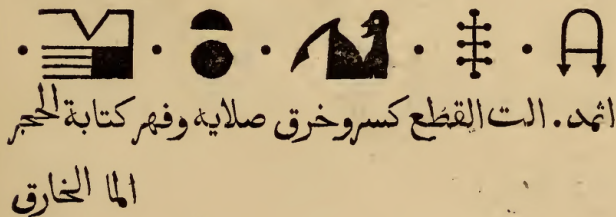 اثمد . الت القطع كسر وخرق صلايه وفهر كتابة الحجر
الما الخارق